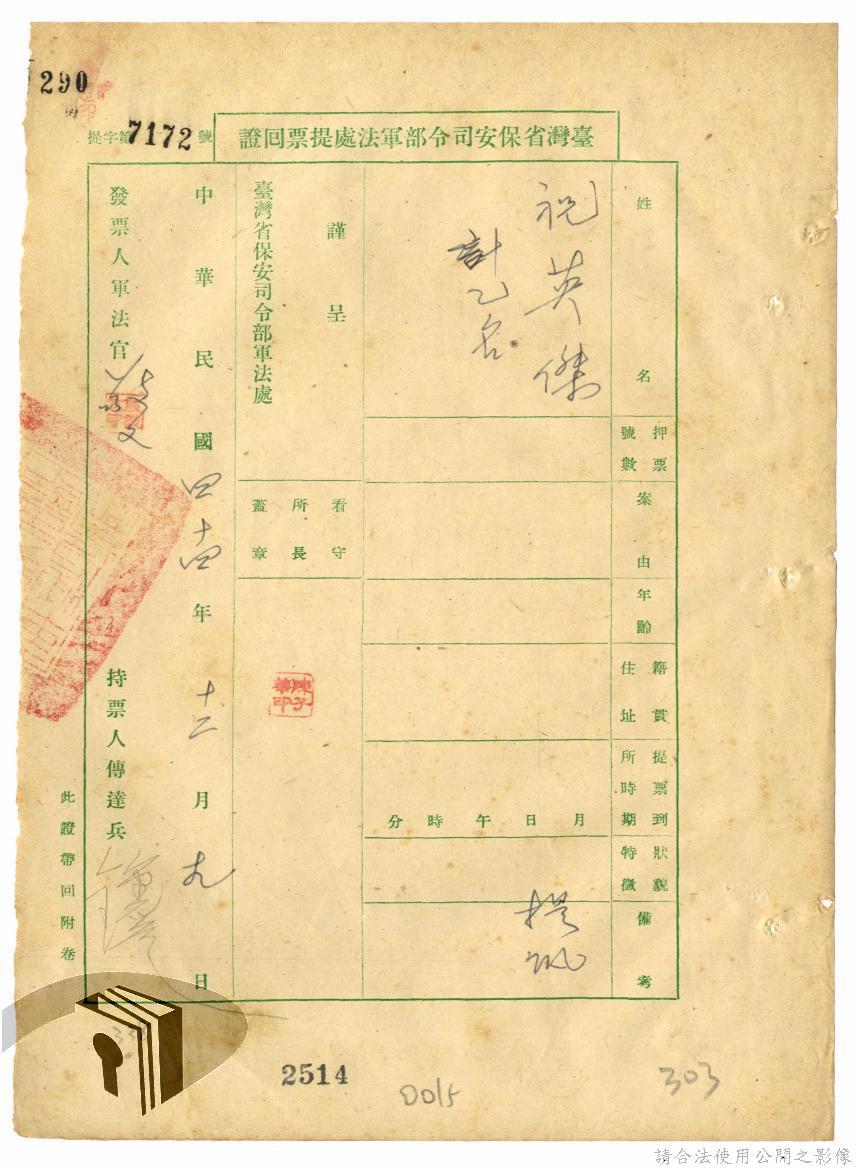 290
提字第7172號
臺灣省保安司令部軍法處提票回證
姓名
祝英傑
計乙名
押票號數
案由
年齡
籍貫住址
提票到所時期
月 日 午 時 分
狀貌特徵
備考
提訊
謹呈
臺灣省保安司令部軍法處
看守所長蓋章
中華民國四十四年十二月九日
發票人軍法官
持票人傳達兵
此證帶回附卷
2514
0015
303
請合法使用公開之影像